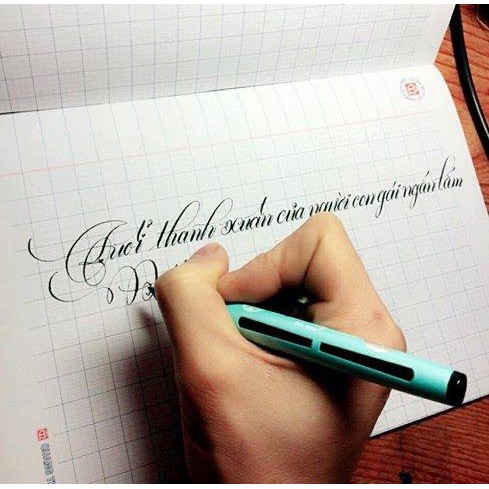 Tuổi thanh xuân của người con gái ngắn lắm